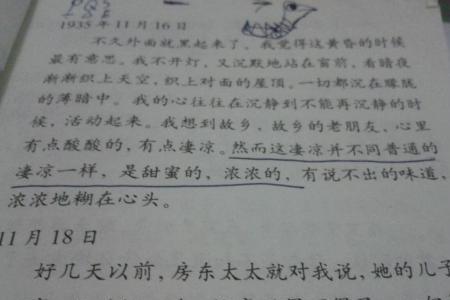 1935年11月16日
不久外面就黑起来了，我觉得这黄昏的时候
最有意思。我不开灯，又沉默地站在窗前，看暗夜
渐渐织上天空，织上对面的屋顶。一切都沉在朦胧
的薄暗中。我的心往往在沉静到不能再沉静的时
候，活动起来。我想到故乡，故乡的老朋友，心里
有点酸酸的，有点凄凉。然而这凄凉并不同普通的
凄凉一样，是甜蜜的，浓浓的，有说不出的味道，
浓浓地糊在心头。
11月18日
好几天以前，房东太太就对我说，她的儿子